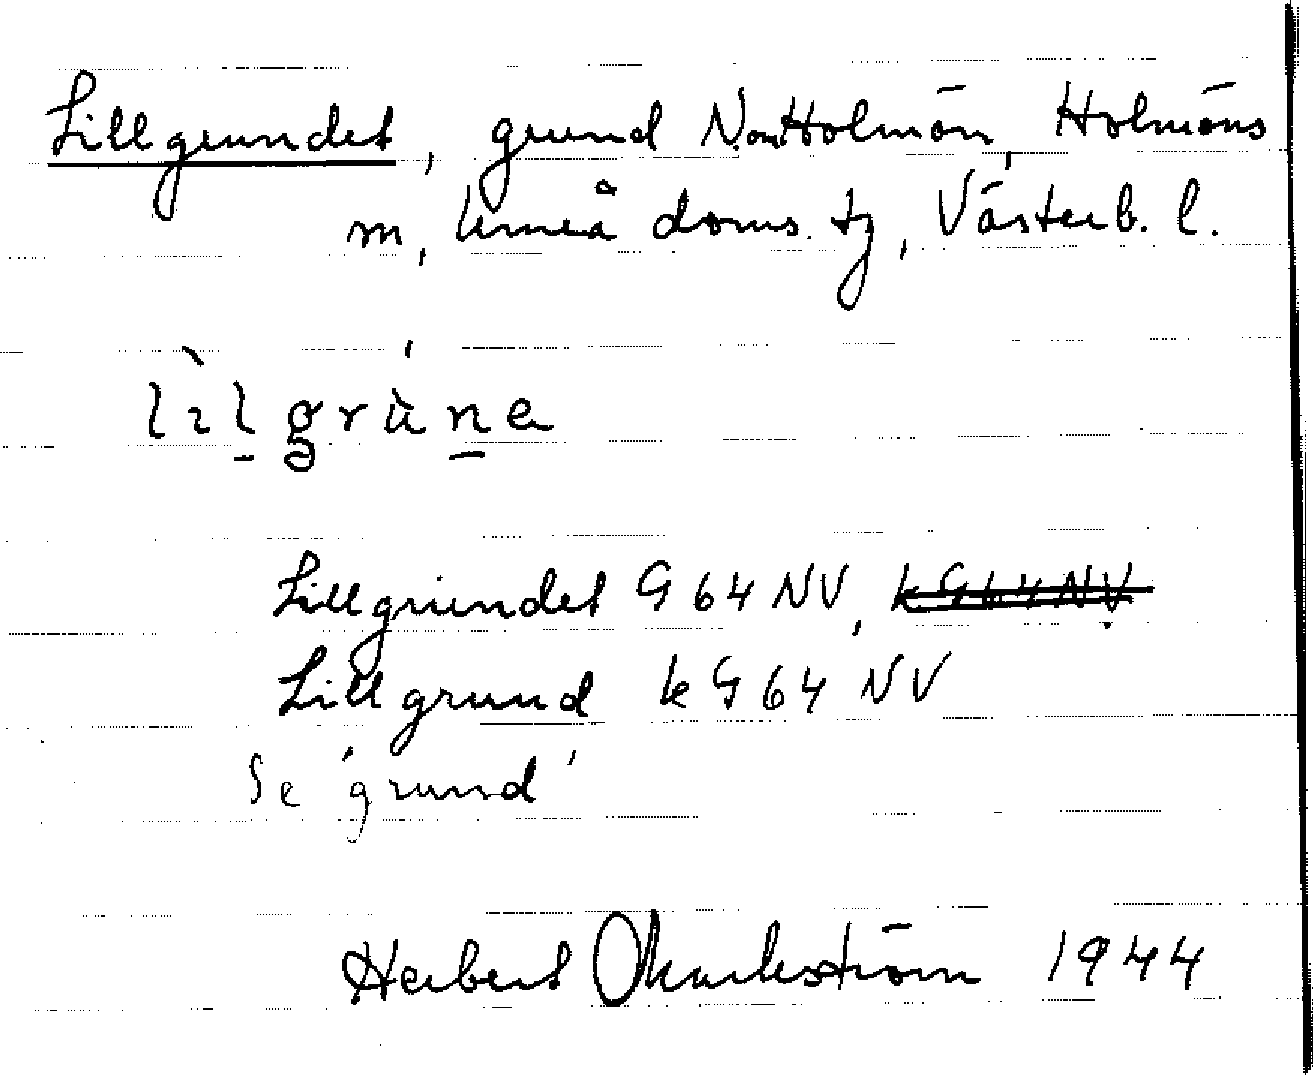 Lillgrundet, grund N. om Holmön, Holmöns
m, Umeå doms. tj, Västerb. l.
lìlgrùne
Lillgrundet G 64 NV, k G 64 NV.
Lillgrund k G 64 NV
Se 'grund'
Herbert Markström 1944